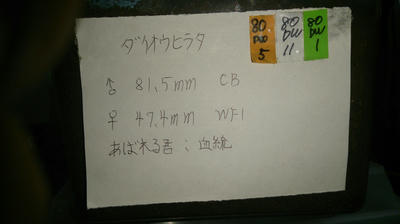 ダイオウヒラタ
80 DW 5
80 DW 11
80 DW 1
♂ 81,5mm CB
♀ 47,4mm WF1
あばれる君;血統